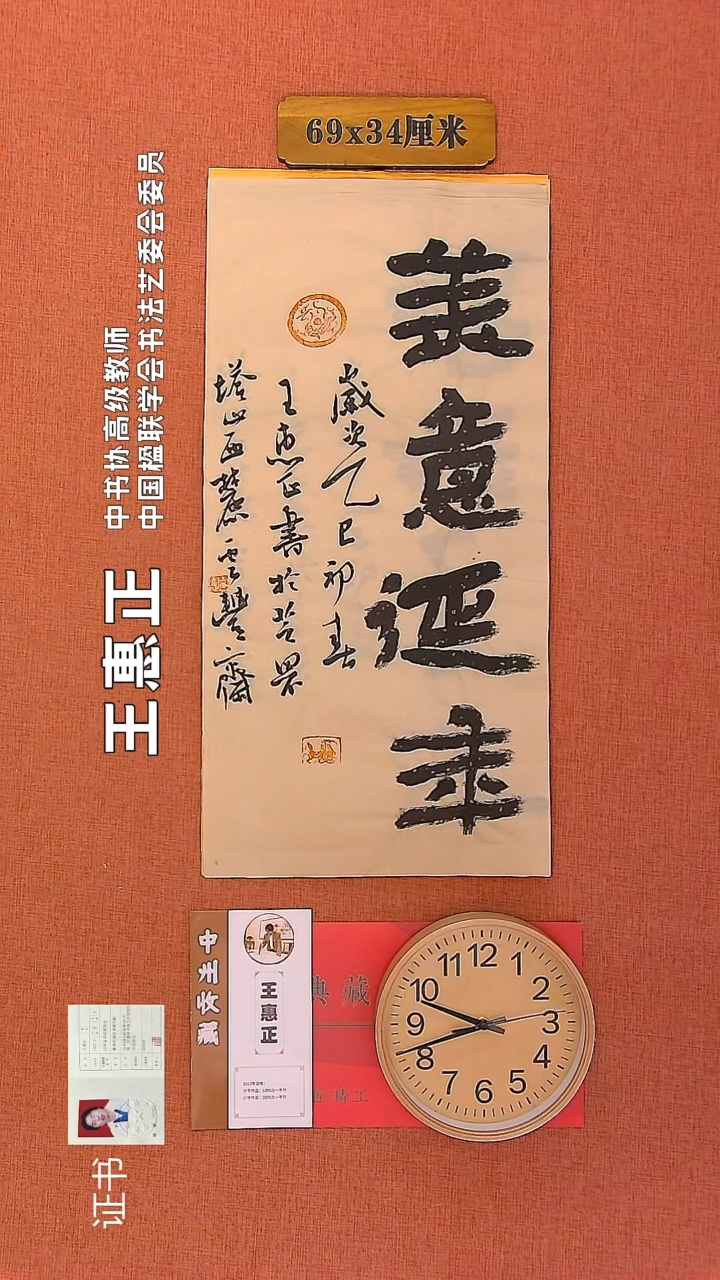 69x34厘米
美意延年
歲次乙巳初春
王惠正書於苍署
塔山西麓雲豐齋
中书协高级教师
中国楹联学会书法艺委会委员
王惠正
收藏
王惠正
典藏
12
1
2
3
4
5
6
7
8
9
10
11
证书